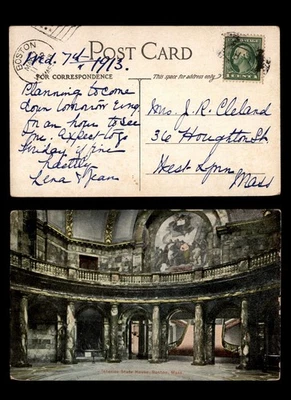 BOSTON
Wed. 7th, 1913.
POST CARD
FOR CORRESPONDENCE
This space for address only.
Planning to come
down tomorrow Evng
for an hour to see
you. Expect to go
Sunday if fine
Hastily
Lena & Jean
Mrs. J. R. Cleland
36 Houghton St.
West Lynn
Mass
State House, Boston, Mass.